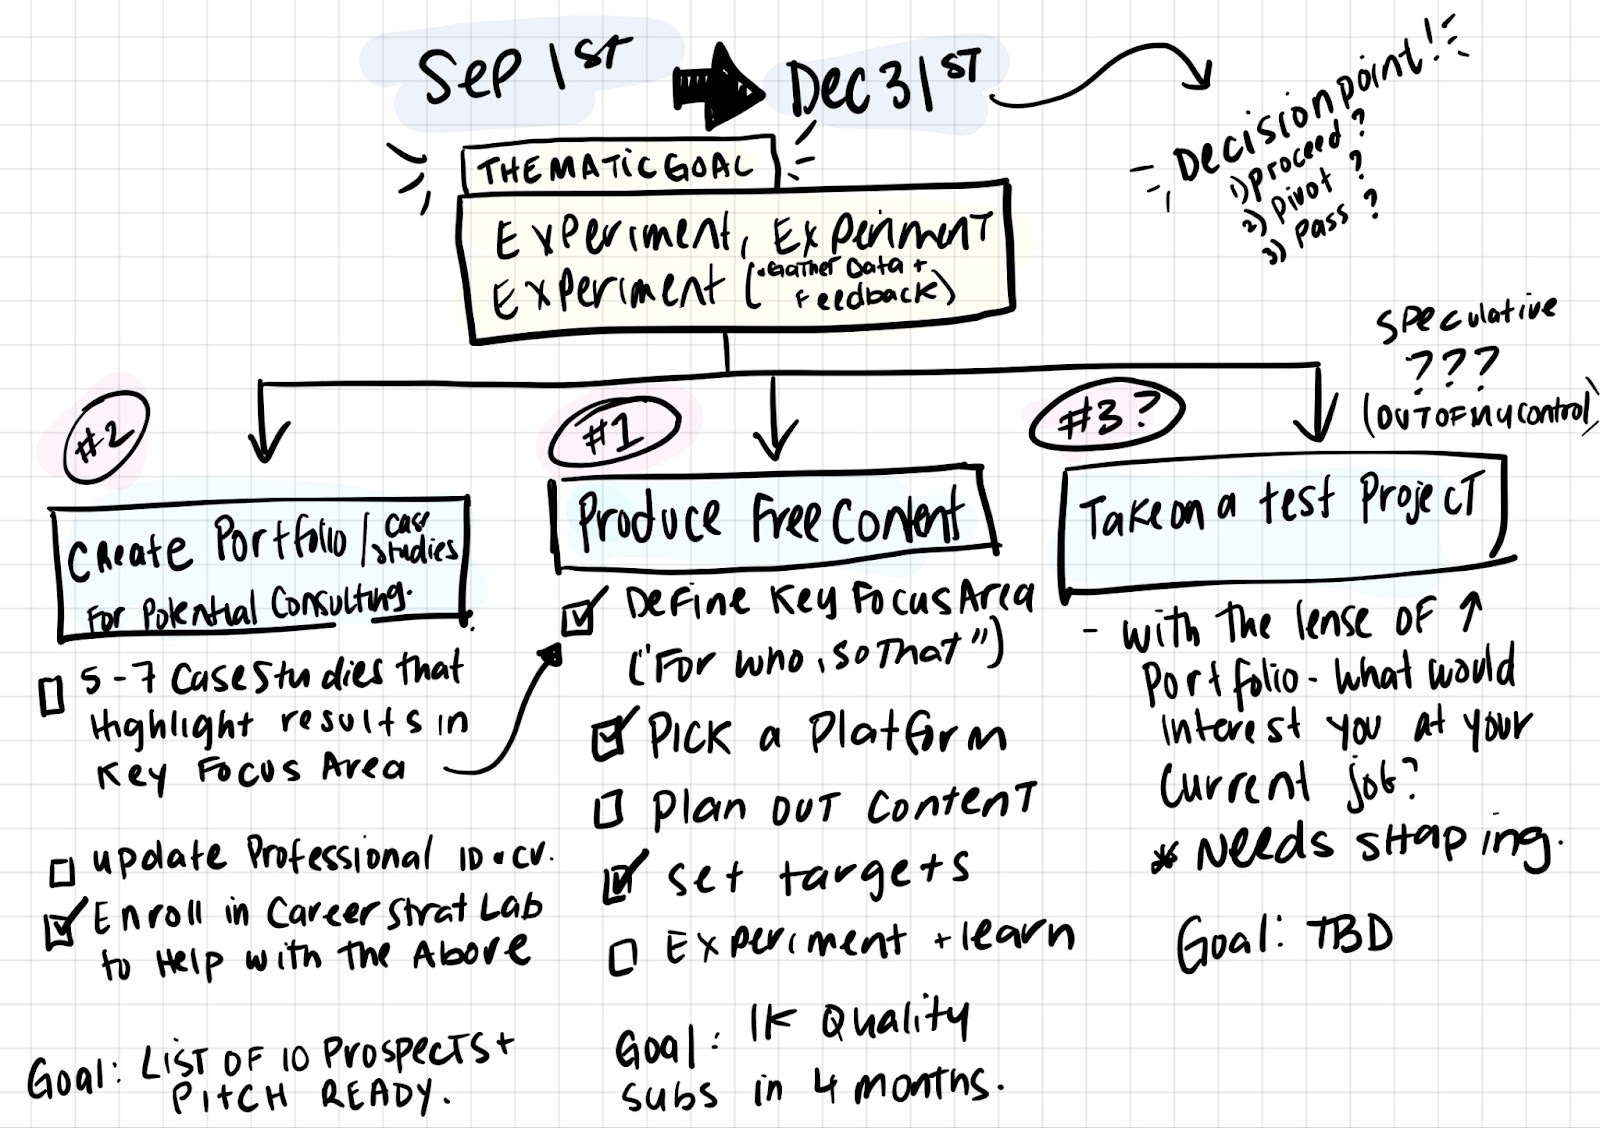 Sep 1ST
Dec 31ST
Decision point!
1) Proceed?
2) Pivot?
3) Pass?
THEMATIC GOAL
Experiment, Experiment
Experiment (Gather Data +
Feedback)
Speculative
???
(OUT OF MY Control)
#2
Create Portfolio / Case
Studies
For Potential Consulting.
5-7 Case Studies that
Highlight results in
Key Focus Area
update Professional ID + CV.
Enroll in Career Strat Lab
to Help with the Above
Goal: LIST OF 10 Prospects +
PITCH READY.
#1
Produce Free Content
Define Key Focus Area
("For who, so that")
Pick a Platform
Plan out content
Set targets
Experiment + learn
Goal: 1K Quality
subs in 4 months.
#3?
Take on a test Project
- with the lense of ↑
Portfolio - what would
interest you at your
current job?
* Needs shaping.
Goal: TBD